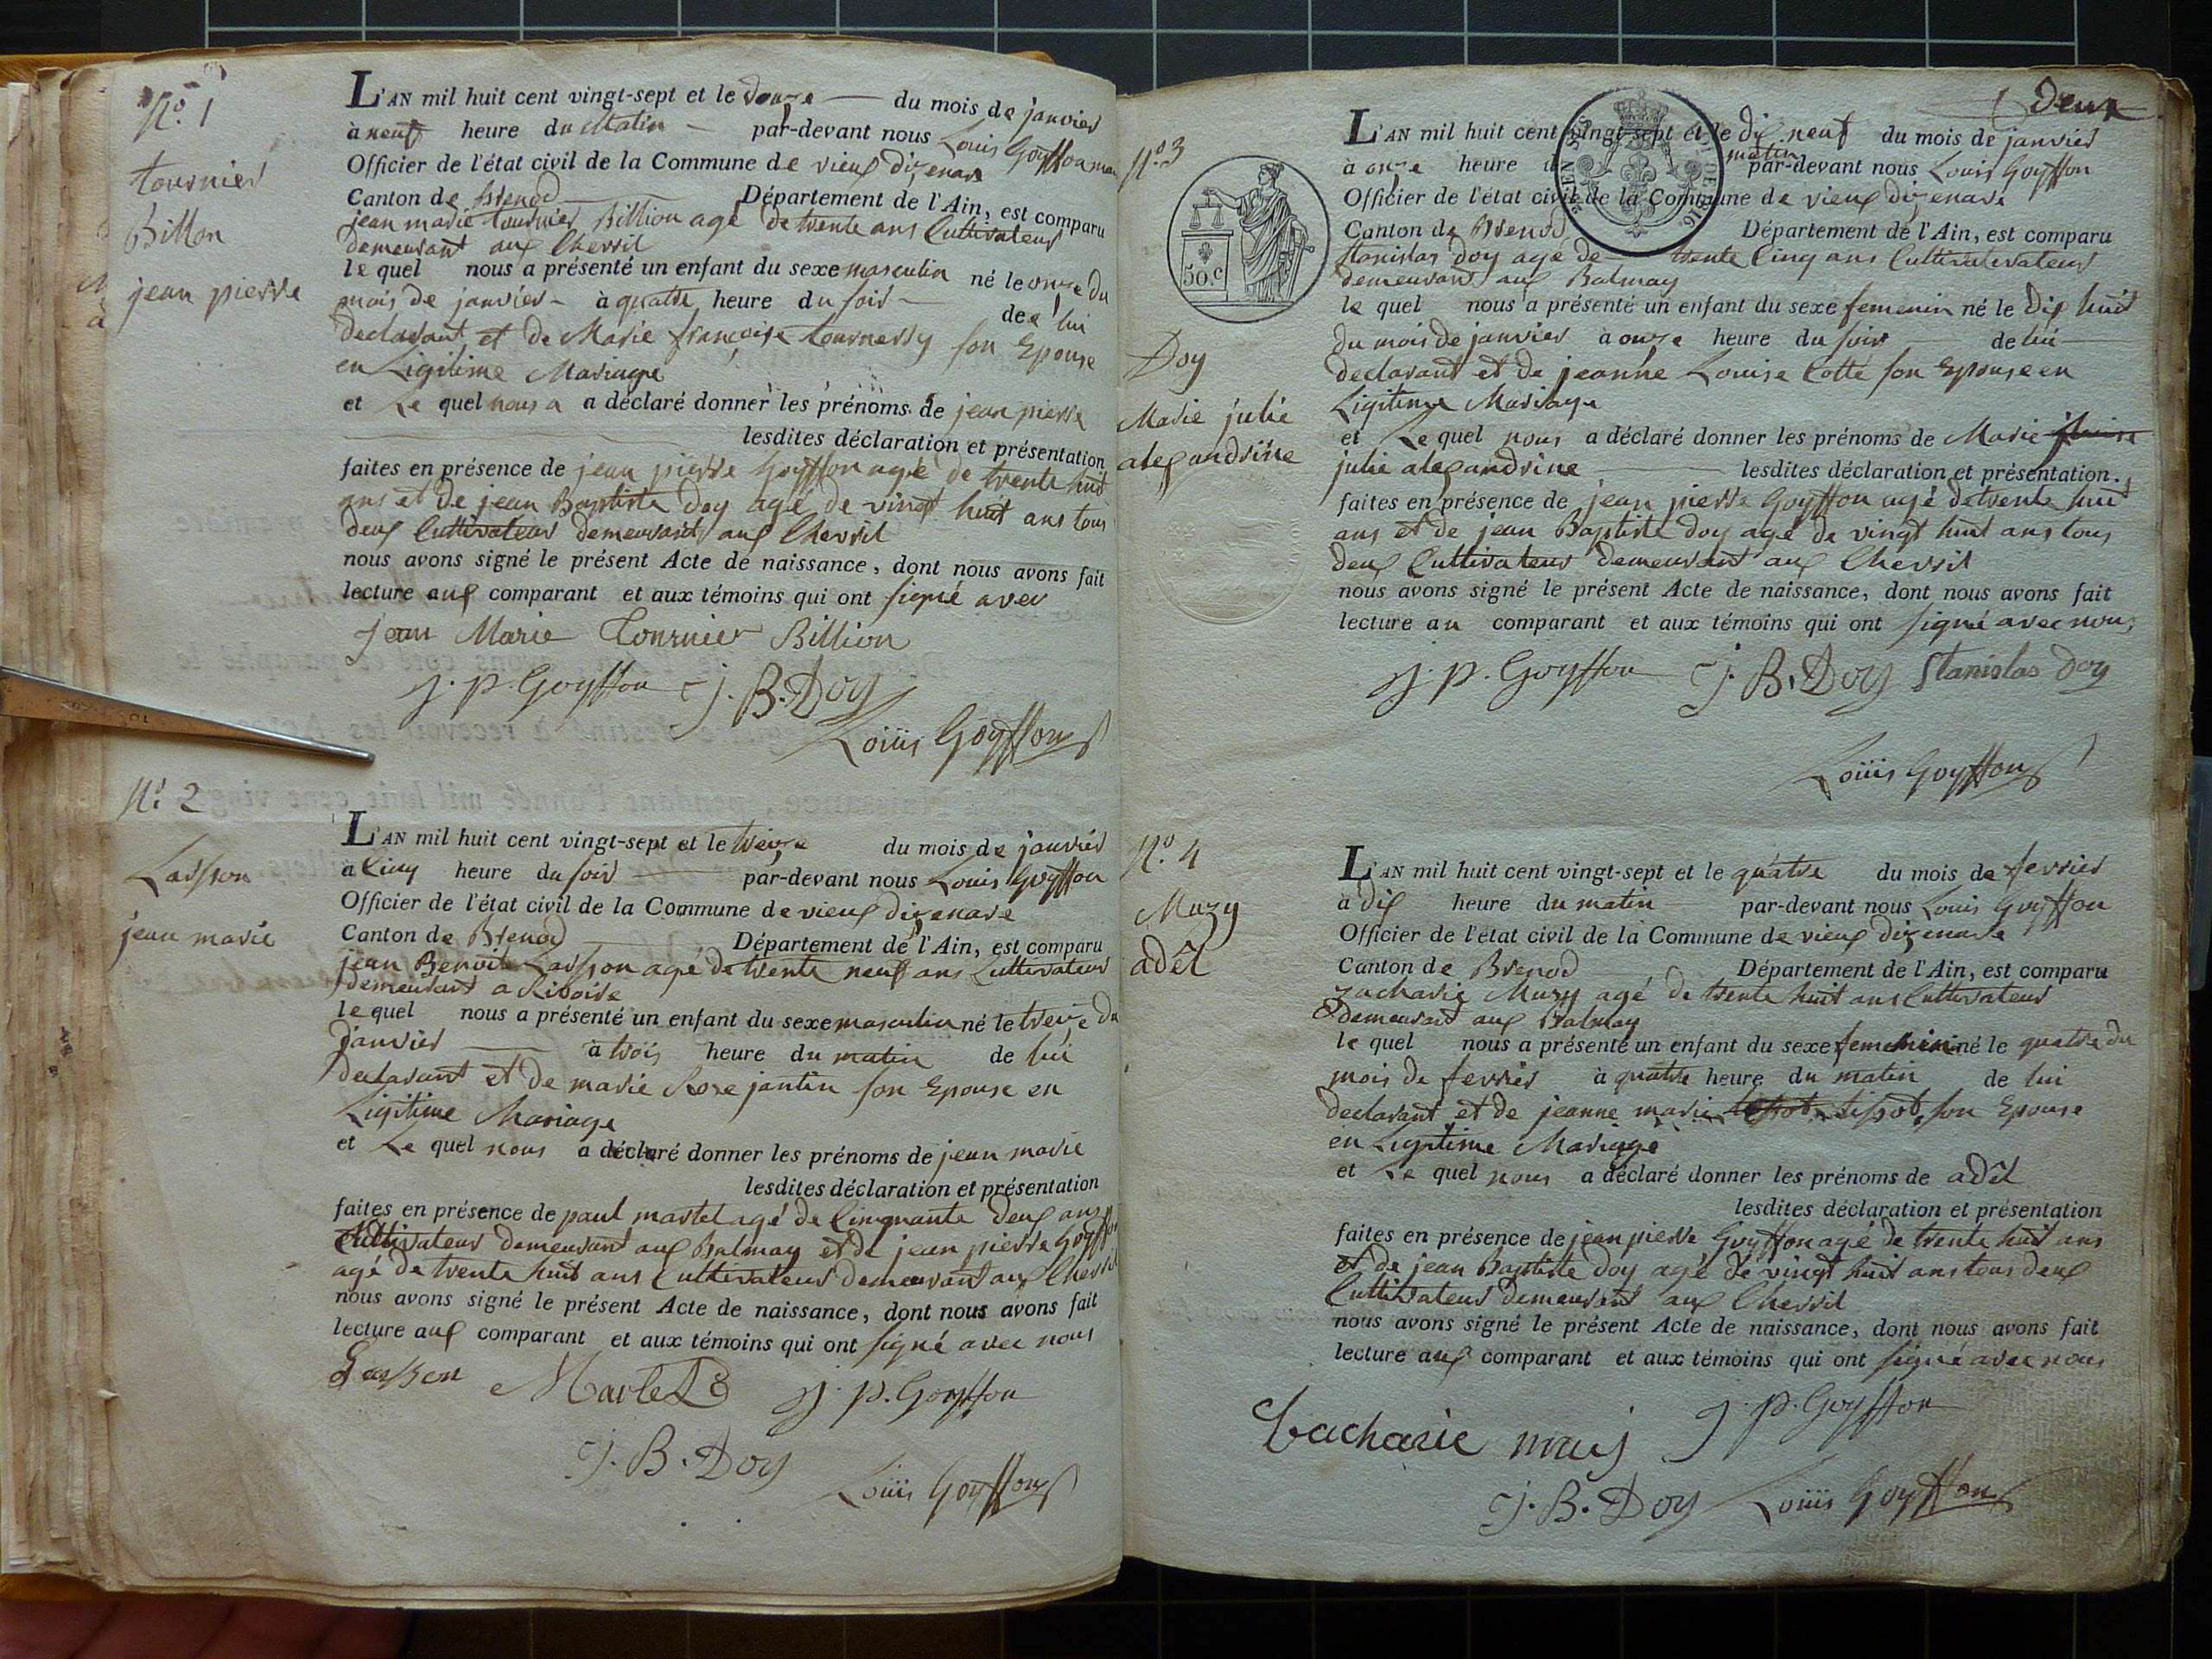 N.º 1
tournier
Billon
jean pierre
L'AN mil huit cent vingt-sept et le douze du mois de janvier
à neuf heure du Matin par-devant nous Louis Goyffon
Officier de l'état civil de la Commune de vieux dizenave
Canton de Brenod Département de l'Ain, est comparu
jean marie tournier Billion agé de trente ans Cultivateur
demeurant aux Chevril
le quel nous a présenté un enfant du sexe masculin né le onze du
mois de janvier à quatre heure du soir de lui
declarant et de Marie françoise tournessy son Epouse
en Ligitime Mariage
et Le quel nous a a déclaré donner les prénoms de jean pierre
lesdites déclaration et présentation
faites en présence de jean pierre Goyffon agé de trente huit
ans et de jean Baptiste doy agé de vingt huit ans tous
deux Cultivateur demeurant aux Chevril
nous avons signé le présent Acte de naissance, dont nous avons fait
lecture aux comparant et aux témoins qui ont signé avec
Jean Marie Tournier Billion
j. p. Goyffon J. B. Doy
Loüis Goyffon
N.º 2
Lasson
jean marie
L'AN mil huit cent vingt-sept et le treize du mois de janvier
à Cinq heure du soir par-devant nous Louis Goyffon
Officier de l'état civil de la Commune de vieux dizenave
Canton de Brenod Département de l'Ain, est comparu
jean Benoit Lasson agé de trente neuf ans Cultivateur
demeurant a Rivoire
le quel nous a présenté un enfant du sexe masculin né le treize du
janvier à trois heure du matin de lui
declarant et de marie Rose jantin son Epouse en
Ligitime Mariage
et Le quel nous a déclaré donner les prénoms de jean marie
lesdites déclaration et présentation
faites en présence de paul martel agé de Cinquante deux ans
Cultivateur demeurant aux Balmay et de jean pierre Goyffon
agé de trente huit ans Cultivateur demeurant aux Chevril
nous avons signé le présent Acte de naissance, dont nous avons fait
lecture aux comparant et aux témoins qui ont signé avec nous
Lasson Martel j. p. Goyffon
J. B. Doy
Loüis Goyffon
Deux
N.º 3
50.c
Doy
Marie julie
alexandrine
L'AN mil huit cent vingt-sept et le dix neuf du mois de janvier
à onze heure du matin par-devant nous Louis Goyffon
Officier de l'état civil de la Commune de vieux dizenave
Canton de Brenod Département de l'Ain, est comparu
Stanislas doy agé de trente Cinq ans Cultivateur
demeurant aux Balmay
le quel nous a présenté un enfant du sexe femenin né le dix huit
du mois de janvier à onze heure du soir de lui
declarant et de jeanne Louise Cotte son Epouse en
Ligitime Mariage
et Le quel nous a déclaré donner les prénoms de Marie
julie alexandrine lesdites déclaration et présentation
faites en présence de jean pierre Goyffon agé de trente huit
ans et de jean Baptiste doy agé de vingt huit ans tous
deux Cultivateur demeurant aux Chevril
nous avons signé le présent Acte de naissance, dont nous avons fait
lecture au comparant et aux témoins qui ont signé avec nous
j. p. Goyffon J. B. Doy Stanislas Doy
Loüis Goyffon
N.º 4
Muzy
adêl
L'AN mil huit cent vingt-sept et le quatre du mois de fevrier
à dix heure du matin par-devant nous Louis Goyffon
Officier de l'état civil de la Commune de vieux dizenave
Canton de Brenod Département de l'Ain, est comparu
zacharie Muzy agé de trente huit ans Cultivateur
demeurant aux Balmay
le quel nous a présenté un enfant du sexe femenin né le quatre du
mois de fevrier à quatre heure du matin de lui
declarant et de jeanne marie tissot son Epouse
en Ligitime Mariage
et Le quel nous a déclaré donner les prénoms de adêl
lesdites déclaration et présentation
faites en présence de jean pierre Goyffon agé de trente huit ans
et de jean Baptiste doy agé de vingt huit ans tous deux
Cultivateur demeurant aux Chevril
nous avons signé le présent Acte de naissance, dont nous avons fait
lecture aux comparant et aux témoins qui ont signé avec nous
Zacharie muzy j. p. Goyffon
J. B. Doy Loüis Goyffon